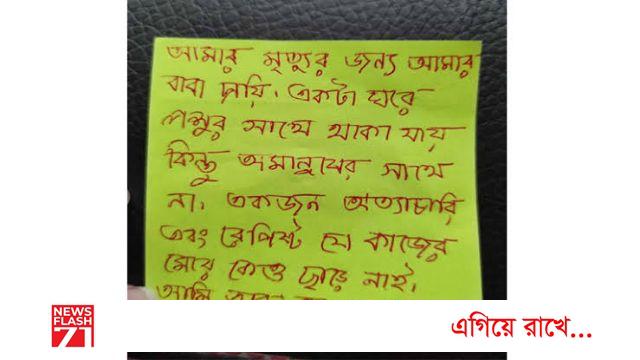 আমার মৃত্যুর জন্য আমার
বাবা দায়ি. একটা ঘরে
পশুর সাথে থাকা যায়
কিন্তু অমানুষের সাথে
না. একজন অত্যাচারি
এবং রেপিস্ট যে কাজের
মেয়ে কেও ছাড়ে নাই.
আমি
NEWS
FLASH
71
এগিয়ে রাখে...